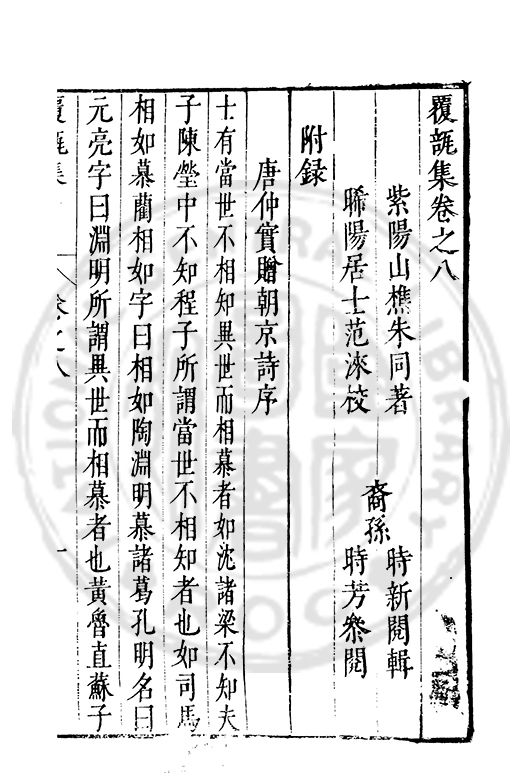 覆瓿集卷之八
紫陽山樵朱同著
晞陽居士范淶校
裔孫
時新閱輯
時芳叅閱
附録
唐仲實贈朝京詩序
士有當世不相知異世而相慕者如沈諸梁不知夫
子陳瑩中不知程子所謂當世不相知者也如司馬
相如慕藺相如字曰相如陶淵明慕諸葛孔明名曰
元亮字曰淵明所謂異世而相慕者也黃魯直蘇子
覆瓿集
卷之八
一